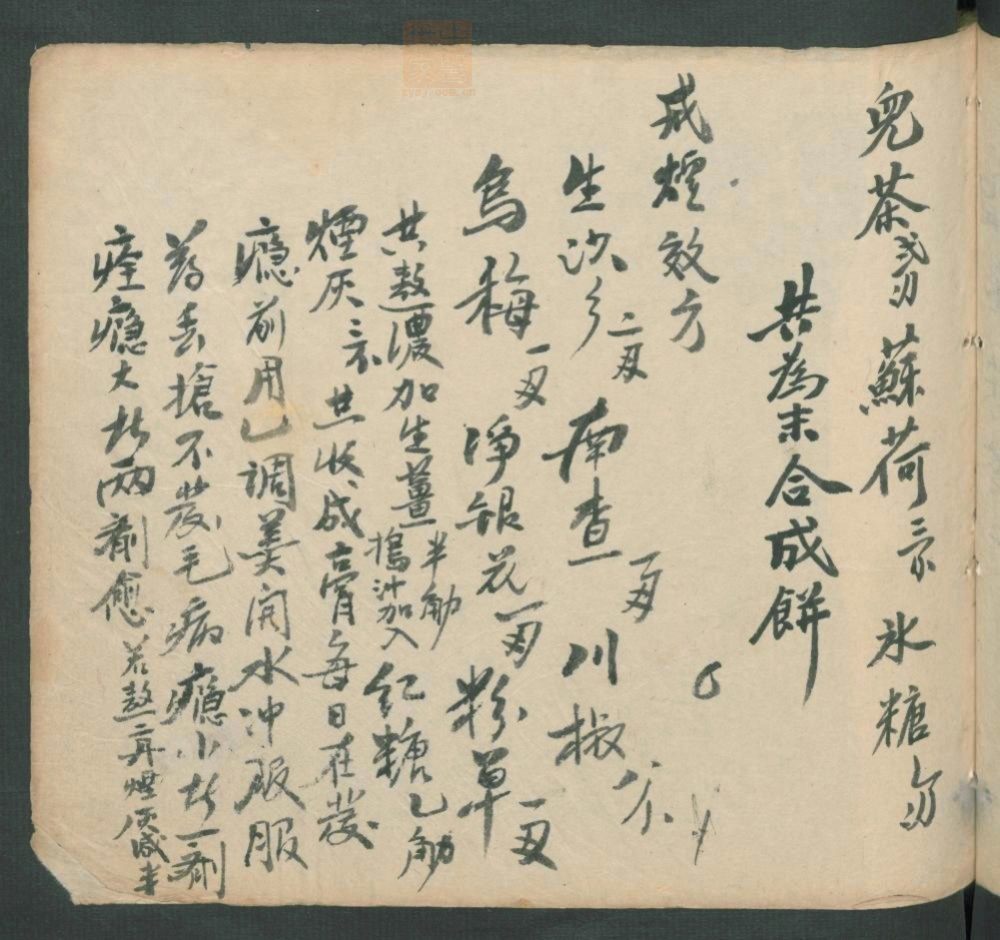 兒茶弍刄 蘇荷三分 氷糖刄
共為末合成餅
戒煙效方
生沙 二刄 南查一刄 川椒八分
烏梅一刄 淨銀花一刄 粉草一刄
共熬濃加生薑半觔搗汁加入紅糖乙觔
煙灰三分共收成膏每日在發
癮前用乙調羹開水冲服服
葯丟搶不發毛病癮小者一劑
痊癮大者兩劑愈若熬膏煙灰減半